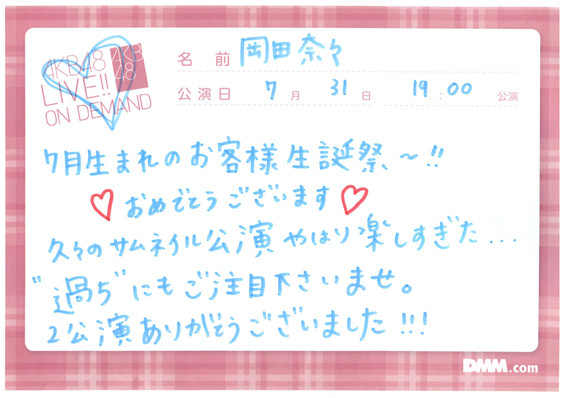 AKB48
LIVE!!
ON DEMAND
AKB
48
名前 岡田奈々
公演日 7月 31日 19:00 公演
7月生まれのお客様生誕祭〜!!
♡おめでとうございます♡
久々のサムネイル公演やはり楽しすぎた...
"過ち"にもご注目下さいませ。
2公演ありがとうございました!!!
DMM.com